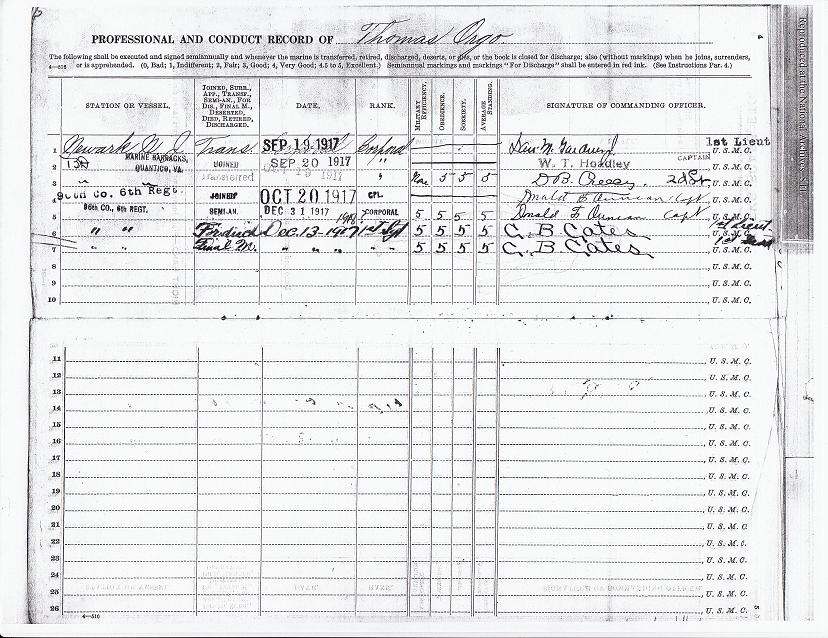 PROFESSIONAL AND CONDUCT RECORD OF Thomas Orgo
The following shall be executed and signed semiannually and whenever the marine is transferred, retired, discharged, deserts, or dies, or the book is closed for discharge; also (without markings) when he joins, surrenders,
4—516 or is apprehended. (0, Bad; 1, Indifferent; 2, Fair; 3, Good; 4, Very Good; 4.5 to 5, Excellent.) Semiannual markings and markings "For Discharge" shall be entered in red ink. (See Instructions Par. 4.)
STATION OR VESSEL. JOINED, SURR., APP., TRANSF., SEMI-AN., FOR DIS., FINAL M., DESERTED, DIED, RETIRED, DISCHARGED. DATE. RANK. MILITARY EFFICIENCY. OBEDIENCE. SOBRIETY. AVERAGE STANDING. SIGNATURE OF COMMANDING OFFICER.
1 Newark N. J. Trans. SEP 19 1917 Corporal 1st Lieut U. S. M. C.
2 MARINE BARRACKS, QUANTICO, VA. JOINED SEP 20 1917 " W. T. Hoadley CAPTAIN U. S. M. C.
3 " Transferred 1917 " 5 5 5 D. B. 2d Lt. U. S. M. C.
4 96th Co. 6th Regt. JOINED OCT 20 1917 CPL. Donald F. Duncan Capt U. S. M. C.
5 96th CO., 6th REGT. SEMI-AN. DEC 31 1917 CORPORAL 5 5 5 5 Donald F. Duncan Capt U. S. M. C.
6 " " Dec. 13 1st Sgt 5 5 5 5 C. B. Cates 1st Lieut. U. S. M. C.
7 " " Final M. " " " " " 5 5 5 5 C. B. Cates U. S. M. C.
8 U. S. M. C.
9 U. S. M. C.
10 U. S. M. C.
11 U. S. M. C.
12 U. S. M. C.
13 U. S. M. C.
14 U. S. M. C.
15 U. S. M. C.
16 U. S. M. C.
17 U. S. M. C.
18 U. S. M. C.
19 U. S. M. C.
20 U. S. M. C.
21 U. S. M. C.
22 U. S. M. C.
23 U. S. M. C.
24 U. S. M. C.
25 U. S. M. C.
26 U. S. M. C.
4—516
Reproduced at the National Archives